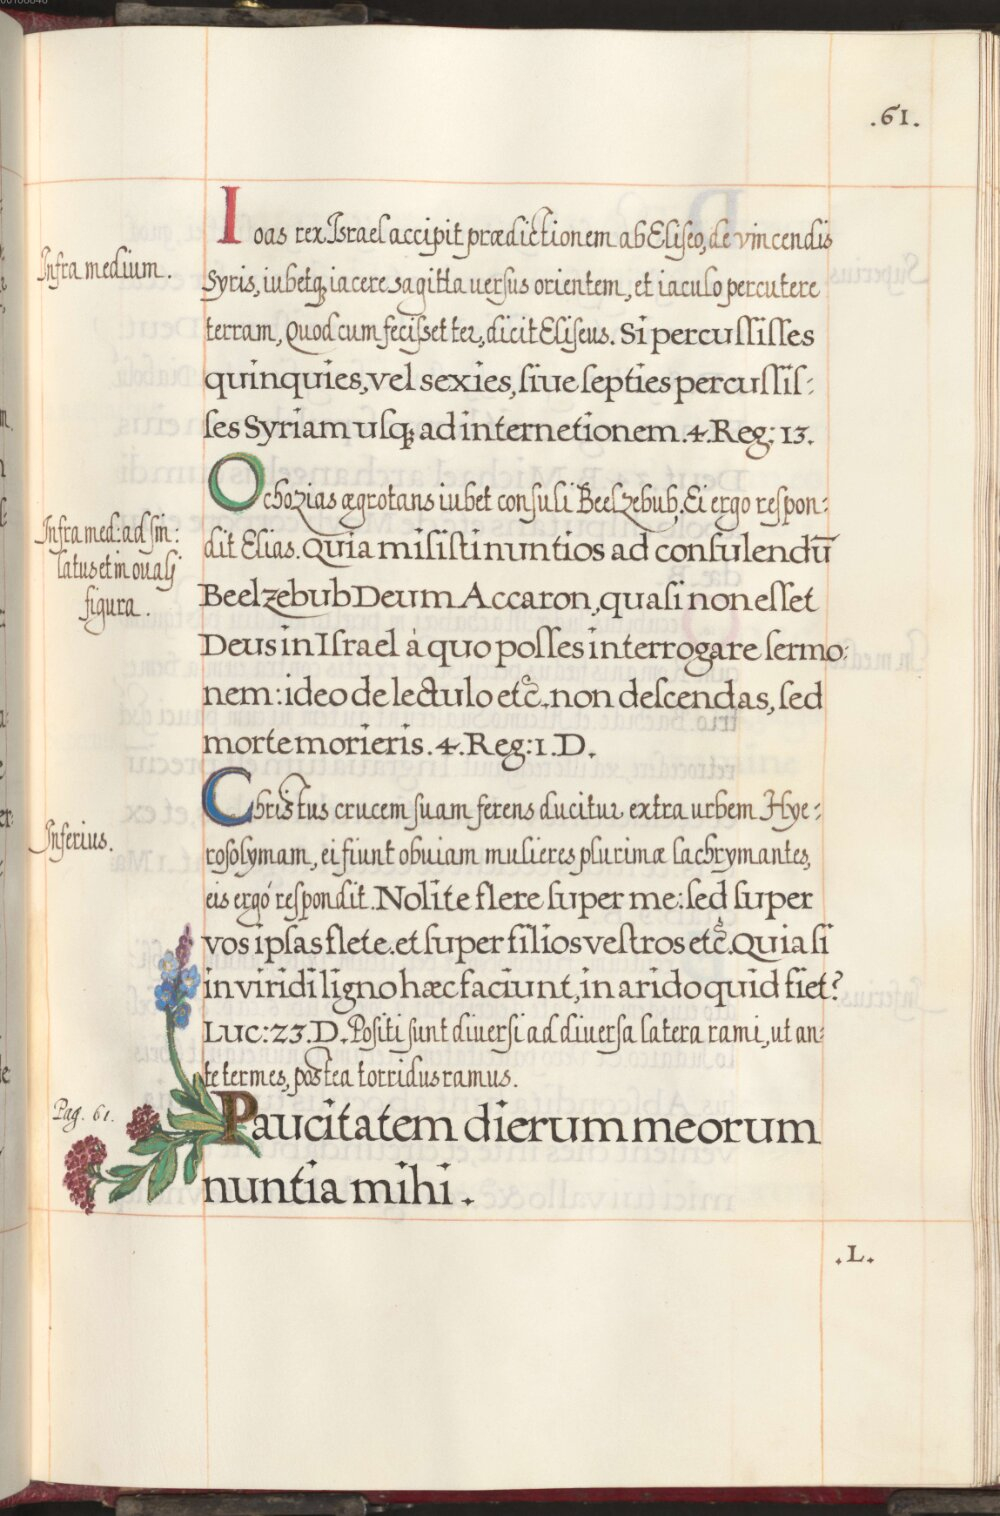 .61.
Infra medium.
Ioas rex Israel accipit prædictionem ab Eliseo, de vincendis
Syris, iubetq; iacere sagitta uersus orientem, et iaculo percutere
terram, Quod cum fecisset ter, dicit Eliseus. Si percussisses
quinquies, vel sexies, siue septies percussis-
ses Syriam usq; ad internetionem. 4. Reg: 13.
Infra med: ad sin:
latus et in ouali
figura.
Ochozias ægrotans iubet consuli Beelzebub. Ei ergo respon-
dit Elias. Quia misisti nuntios ad consulendū
Beelzebub Deum Accaron, quasi non esset
Deus in Israel à quo posses interrogare sermo-
nem: ideo de lectulo etc̃. non descendas, sed
morte morieris. 4. Reg: 1. D.
Inferius.
Christus crucem suam ferens ducitur extra urbem Hye-
rosolymam, ei fiunt obuiam mulieres plurimæ lachrymantes,
eis ergo respondit. Nolite flere super me: sed super
vos ipsas flete. et super filios vestros etc̃. Quia si
in viridi ligno hæc faciunt, in arido quid fiet?
Luc: 23. D. Positi sunt diuersi ad diuersa latera rami, ut an-
te termes, postea torridus ramus.
Pag. 61.
Paucitatem dierum meorum
nuntia mihi.
.L.